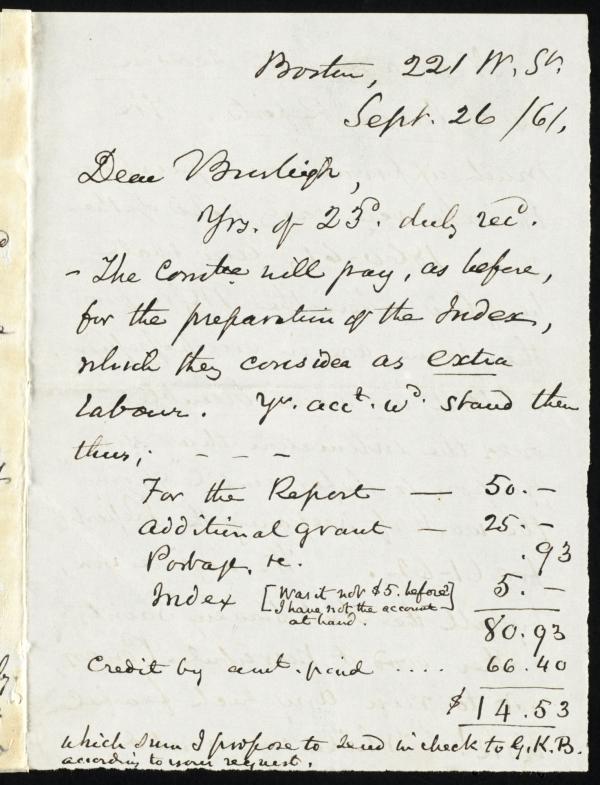 Boston, 221 W. St.
Sept. 26 /61.
Dear Burleigh,
Yrs. of 23d. duly recd.
- The Comtee will pay, as before,
for the preparation of the Index,
which they consider as extra
labour. Yr. acct. wd. stand then
thus; - - -
For the Report — 50.-
additional grant — 25.-
Postage, &c. .93
Index [Was it not $5. before? 5.-
I have not the account
at hand.]
80.93
Credit by amt. paid .... 66.40
$14.53
which sum I propose to send in check to G.K.B.
according to your request.